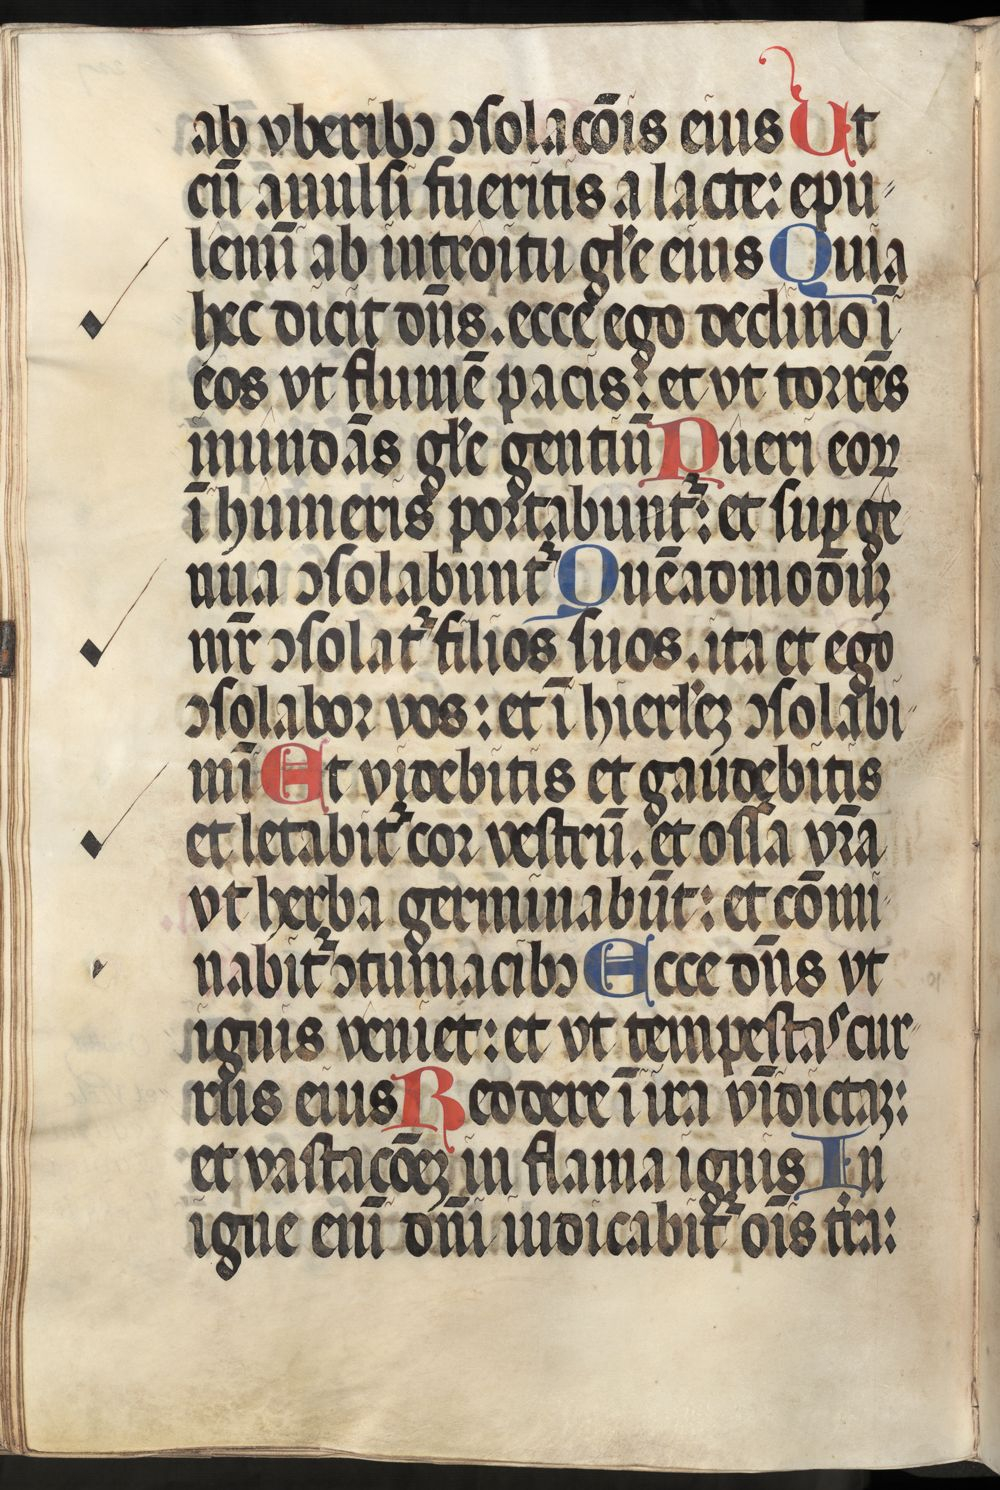 ab vberibꝫ ↄsolacōis eius Ut
cū auulsi fueritis a lacte: epu⸗
lemī ab introitu gl̄e eius Quia
hec dicit dn̄s. ecce ego declino ī
eos vt flumē pacis: et vt torrēs
inundās gl̄e gentiū Pueri eoꝝ
ī humeris portabunt᷑: et suꝑ ge
nua ↄsolabunt᷑ Quēadmodūꝫ
mr̄ ↄsolat᷑ filios suos. ita et ego
ↄsolabor vos: et ī hierl̄eꝫ ↄsolabi⸗
mī Et videbitis et gaudebitis
et letabit᷑ cor vestrū. et ossa vr̄a
vt herba germinabūt: et cōmi
nabit᷑ ↄtumacibꝫ Ecce dn̄s vt
ignis veniet: et vt tempestas cur⸗
rus eius Reddere ī ira vīdictaꝫ:
et vastacōeꝫ in flama ignis In
igne enī dn̄i iudicabit᷑ oīs tr̄a: